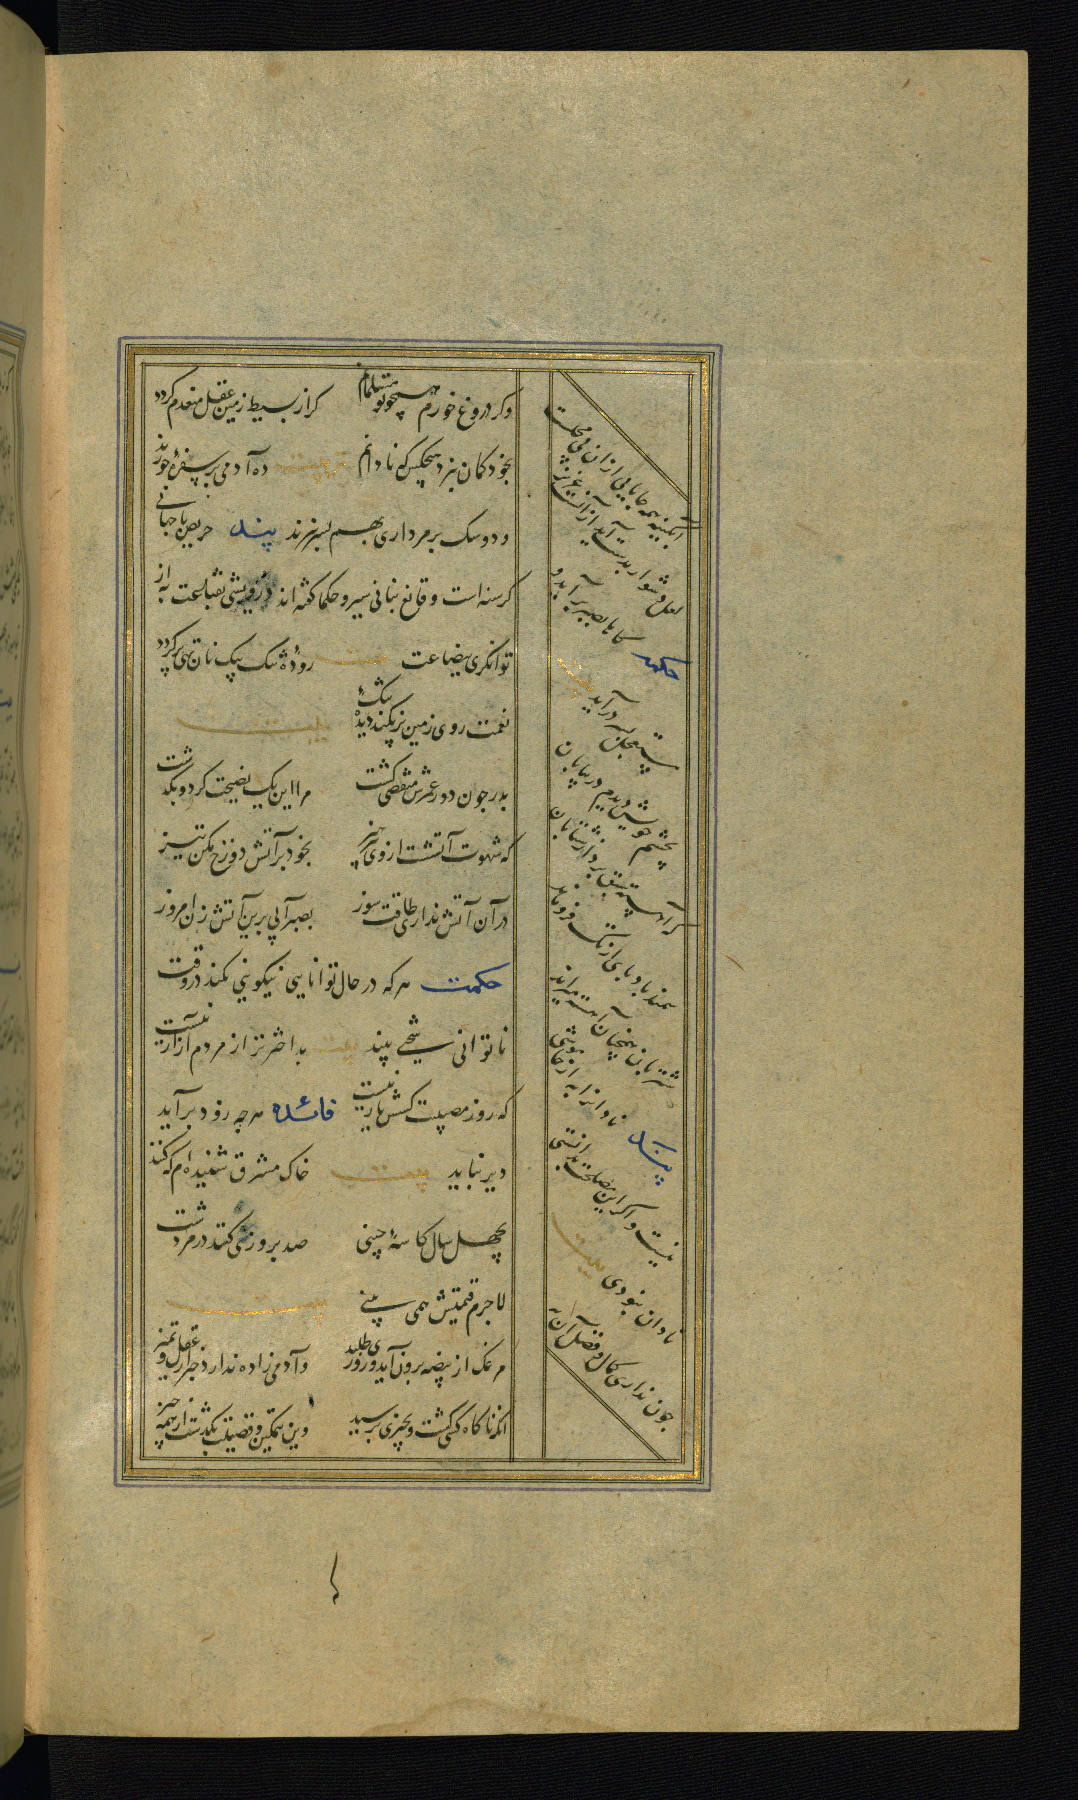 وکر دروغ خورم همچو تو مسلمانم کر از بسیط زمین عقل منعدم کردد
بخود کمان نبرد هیچکس که نادانم تربیت ده آدمی بر سفرهٔ خورند
و دو سک بر مرداری بهم بسر نبرند پند حریص با جهانی
کرسنه است و قانع بنانی سیر و حکما کفته اند درویشی بقناعت به از
توانکری ببضاعت بیت رودهٔ تنک بیک نان تهی پر کردد
نعمت روی زمین پر نکند دیدهٔ تنک بیت
پدر چون دور عمرش منقضی کشت مرا این یک نصیحت کرد و بکذشت
که شهوت آتشت از وی بپرهیز بخود بر آتش دوزخ مکن تیز
در آن آتش نداری طاقت سوز بصبر آبی برین آتش زن امروز
حکمت هر که در حال توانایی نیکویی نکند در وقت
ناتوانی سختی بیند بیت بد اختر تر از مردم آزار نیست
که روز مصیبت کسش یار نیست فائده هر چه زود بر آید
دیر نپاید بیت خاک مشرق شنیده ام که کنند
بچهل سال کاسهٔ چینی صد بروزی کنند در مردشت
لاجرم قیمتش همی بینی بیت
مرغک از بیضه برون آید و روزی طلبد و آدمی زاده ندارد خبر از عقل و تمیز
آنکه ناکاه کسی کشت و بچیزی نرسید وین بتمکین و فضیلت بکذشت از همه چیز
آبکینه همه جا یابی از آن بی محلست
لعل دشوار بدست آید از آنست عزیز
حکمت کارها بصبر بر آید و
مستعجل بسر در آید بیت
بچشم خویش دیدم در بیابان
که آهسته سبق برد از شتابان
سمند بادپای از تک فرو ماند
شتربان همچنان آهسته میراند
پند نادانرا به از خاموشی
نیست و اکر این مصلحت بدانستی
نادان نبودی بیت
چون نداری کمال و فضل آن به